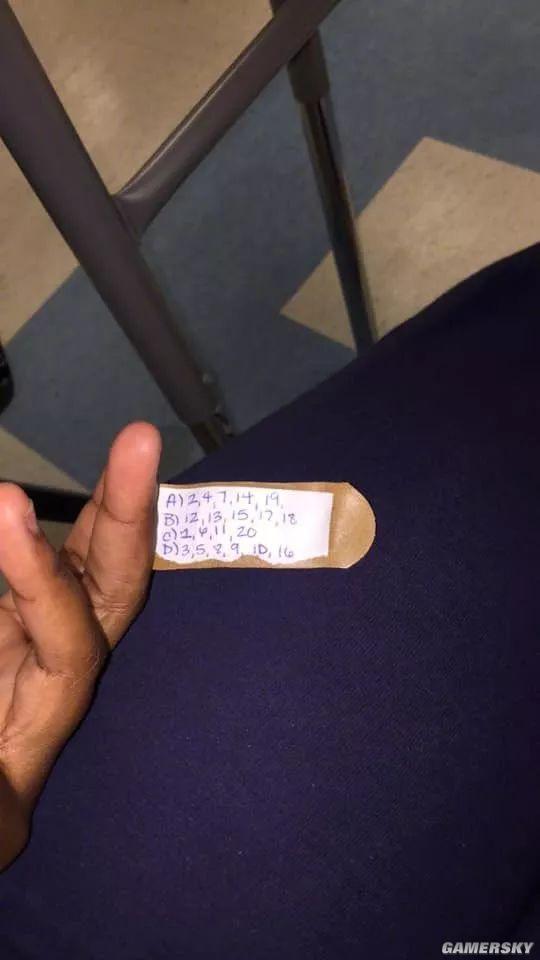 A) 2, 4, 7, 14, 19,
B) 12, 13, 15, 17, 18
C) 1, 6, 11, 20
D) 3, 5, 8, 9, 10, 16
GAMERSKY